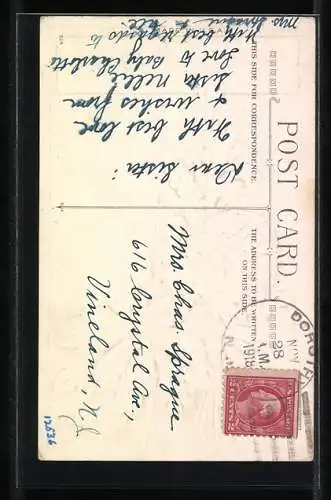 POST CARD.
THIS SIDE FOR CORRESPONDENCE.
THE ADDRESS TO BE WRITTEN
ON THIS SIDE.
Dear Sister:
With best love
& wishes from
Sister Nellie
Love to Baby Charlotte
With best regards to
Mrs Sprague &
Mrs. Chas Sprague
616 Crystal Ave.,
Vineland, N.J.
NOV
28
1918
12536